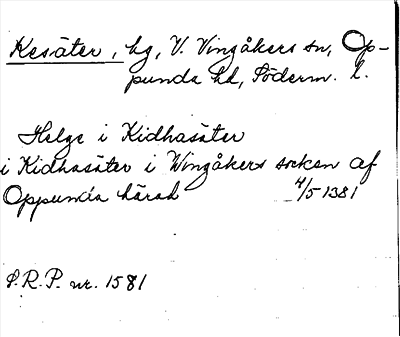 Kesäter, hg, V. Vingåkers sn, Op-
punda hd, Söderm. l.
Helge i Kidhasäter
i Kidhasäter i Wingåkers socken af
Oppunda härad 4/5 1381
S.R.P. nr. 1581